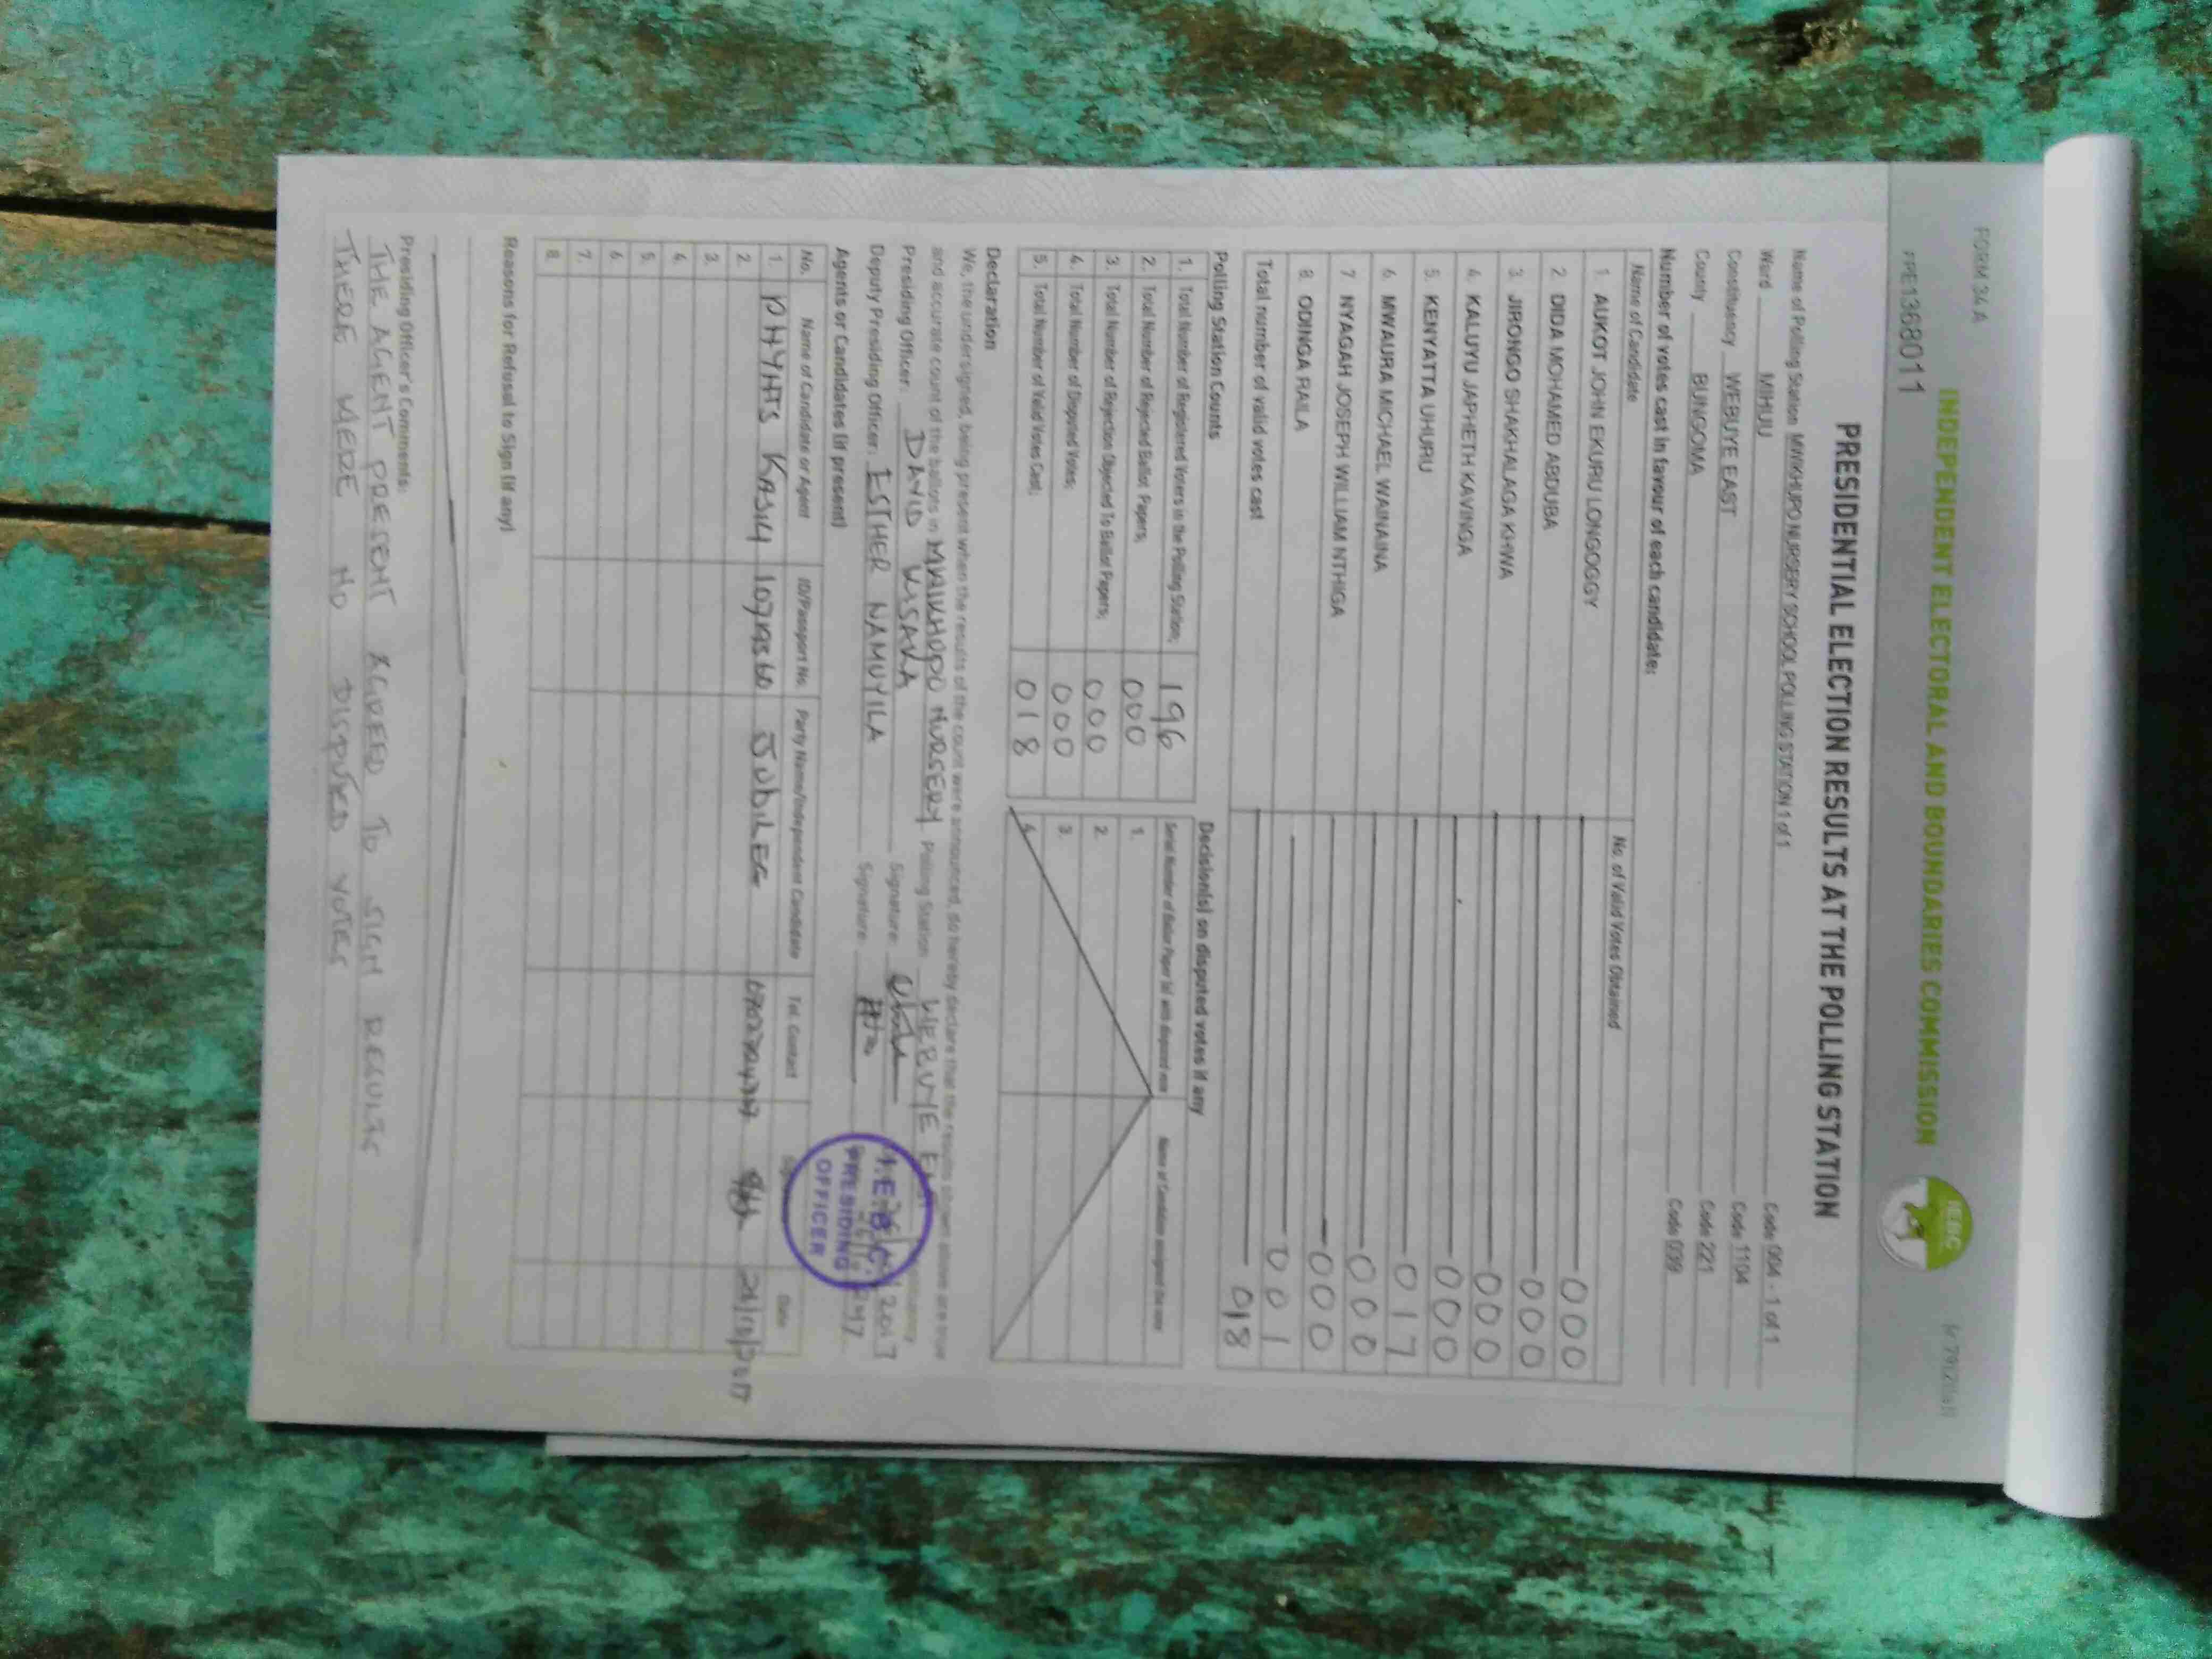 FORM 34 A
INDEPENDENT ELECTORAL AND BOUNDARIES COMMISSION
IEBC
PRE1368011
PRESIDENTIAL ELECTION RESULTS AT THE POLLING STATION
Name of Polling Station MWIKHUPO NURSERY SCHOOL POLLING STATION 1 of 1 Code 004 - 1 of 1
Ward MIHUU Code 1104
Constituency WEBUYE EAST Code 221
County BUNGOMA Code 039
Number of votes cast in favour of each candidate:
Name of Candidate No. of Valid Votes Obtained
1. AUKOT JOHN EKURU LONGOGGY 000
2 DIDA MOHAMED ABDUBA 000
3 JIRONGO SHAKHALAGA KHWA 000
4. KALUYU JAPHETH KAVINGA 000
5. KENYATTA UHURU 017
6 MWAURA MICHAEL WAINAINA 000
7 NYAGAH JOSEPH WILLIAM NTHIGA 000
8. ODINGA RAILA 001
Total number of valid votes cast 018
Polling Station Counts
1. Total Number of Registered Voters in the Polling Station; 196
2. Total Number of Rejected Ballot Papers; 000
3. Total Number of Rejection Objected To Ballot Papers; 000
4. Total Number of Disputed Votes; 000
5. Total Number of Valid Votes Cast; 018
Decision(s) on disputed votes if any
Serial Number of Ballot Paper (s) was disputed Name of Candidate assigned the vote
1.
2.
3.
4.
Declaration
We, the undersigned, being present when the results of the count were announced, do hereby declare that the results shown above are true
and accurate count of the ballots in MWIKHUPO NURSERY Polling Station WEBUYE
Presiding Officer: DAVID Signature:
Deputy Presiding Officer: ESTHER NAMUYILA Signature:
I.E.B.C.
PRESIDING
OFFICER
Agents or Candidates (if present)
No. Name of Candidate or Agent ID/Passport No. Party Name/Independent Candidate Tel. Contact Date
1. JUBILEE
2.
3.
4.
5.
6.
7.
8.
Reasons for Refusal to Sign (if any)
Presiding Officer's Comments:
THE AGENT PRESENT AGREED TO SIGN RESULTS
THERE WERE NO DISPUTED VOTES